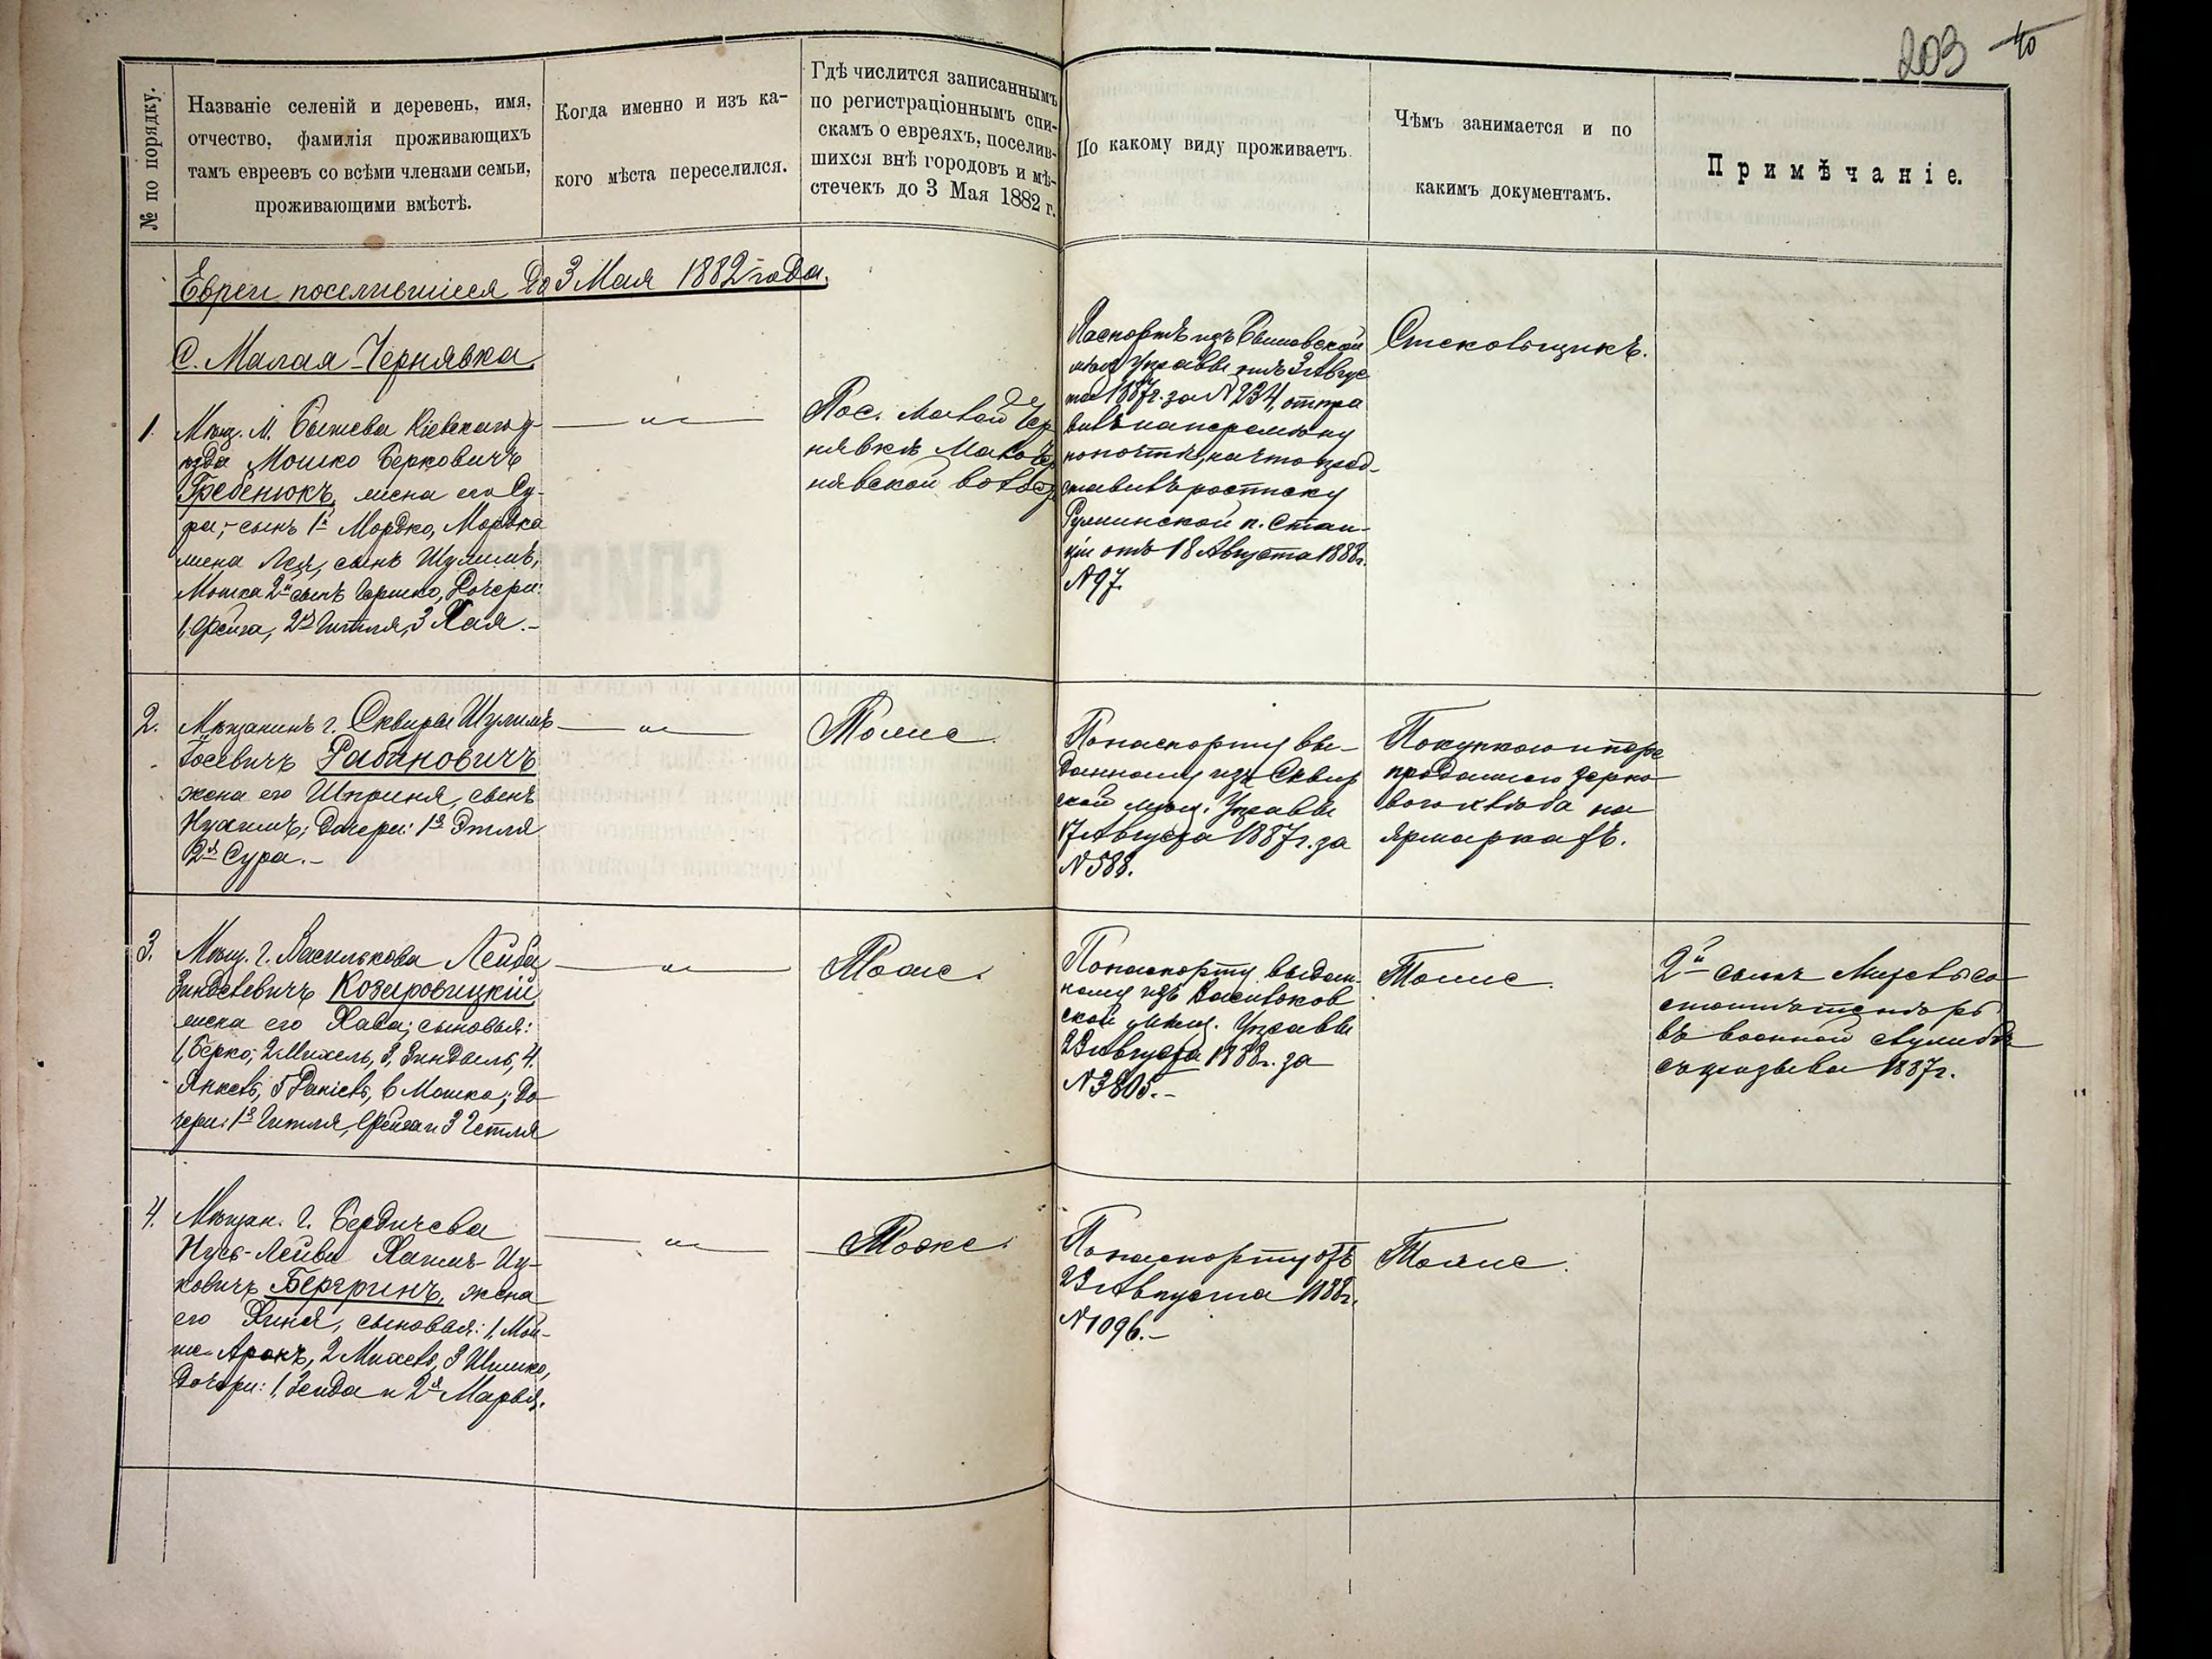 203 40
№ по порядку.
Названіе селеній и деревень, имя,
отчество, фамилія проживающихъ
тамъ евреевъ со всѣми членами семьи,
проживающими вмѣстѣ.
Когда именно и изъ ка-
кого мѣста переселился.
Гдѣ числится записаннымъ
по регистраціоннымъ спи-
скамъ о евреяхъ, поселив-
шихся внѣ городовъ и мѣ-
стечекъ до 3 Мая 1882 г.
По какому виду проживаетъ.
Чѣмъ занимается и по
какимъ документамъ.
Примѣчаніе.
Евреи поселившіеся до 3 Мая 1882 года.
С. Малая-Чернявка
1. Мѣщ. М. Бышева Кіевскаго у-
ѣзда Мошко Берковичъ
Гребенюкъ, жена его Су-
ра; сынъ 1й Мордко, Мордка
жена Лея, сынъ Шулимъ,
Мошка 2й сынъ Гершко, Дочери:
1, Фейга, 2я Гитля, 3 Хая.-
— " —
Пос. Малой Чер
нявкѣ Малочер
нявской волос
Паспортъ изъ Бышовской
мѣщ Управы отъ 3 Авгус
та 1887 г. за № 234, отпра
вилъ на перемѣну
по почтѣ, на что пред-
ставилъ росписку
Ружинской п. Стан-
ціи отъ 18 Августа 1888 г.
№ 97.
Стекольщикъ.
2. Мѣщанинъ г. Сквиры Шулимъ
Іосевичъ Рабиновичъ
жена его Шприня, сынъ
Нухимъ; Дочери: 1я Этля
2я Сура.-
— " —
Тоже
По паспорту вы-
данному изъ Сквир
ской мѣщ. Управы
17 Августа 1887 г. за
№ 588.
Покупкою и пере
продажею зерно
вого хлѣба на
ярмаркахъ.
3. Мѣщ. г. Василькова Лейба
Зинделевичъ Козировицкій
жена его Хава; сыновья:
1, Берко, 2 Михель, 3, Зиндыль, 4.
Янкель, 5 Даніель, 6 Мошко; До-
чери: 1я Гитля, Фейга и 3 Гетля
— " —
Тоже.
По паспорту выдан-
ному изъ Васильков
ской мѣщ. Управы
23 Августа 1888 г. за
№ 3805.-
Тоже.
2й сынъ Михель со
стоитъ теперь
въ военной службѣ
съ призыва 1887 г.
4. Мѣщан. г. Бердичева
Нусь-Лейба Хаимъ-Иц-
ковичъ Бергринъ, жена
его Хиня, сыновья: 1, Мой-
ше Аронъ, 2 Михель, 3 Ишико,
Дочери: 1, Зенда и 2я Марья.
— " —
Тоже.
По паспорту отъ
23 Августа 1888 г.
№ 1096.-
Тоже.